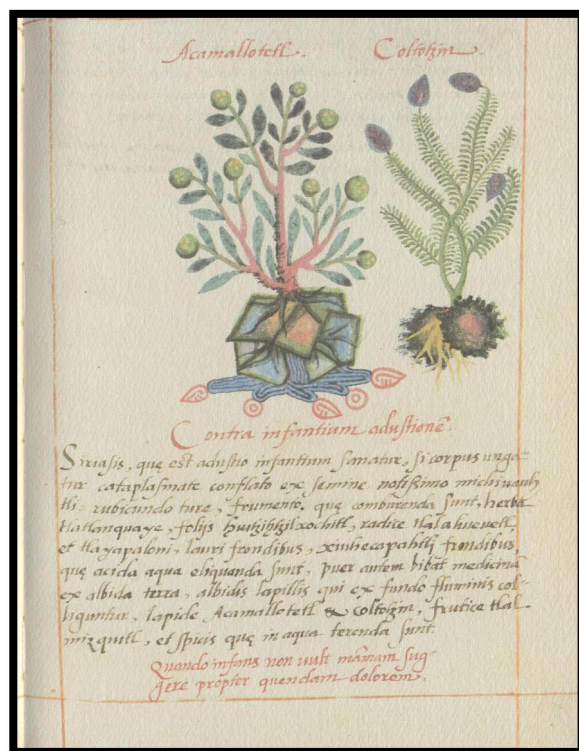 Acamallotetl. Coltotzin.
Contra infantium adustionē.
Siriasis, quę est adustio infantium sanatur, si corpus unga-
tur cataplasmate conflato ex semine notissimo michivauh
tli, rubicundo ture, frumento, quę comburenda sunt, herba
tlatlanquaye, folijs huitzihtzilxochitl, radice tlalahuevetl,
et tlayapaloni, lauri frondibus, xiuhecapahtli frondibus
quę acida aqua eliquanda sunt, puer autem bibat medicinā
ex albida terra, albidis lapillis qui ex fundo fluminis col-
liguntur, lapide Acamallotetl & coltotzin, frutice tlal
mizquitl, et spicis quę in aqua terenda sunt.
Quando infans non vult māmam sug-
gere propter quendam dolorem.